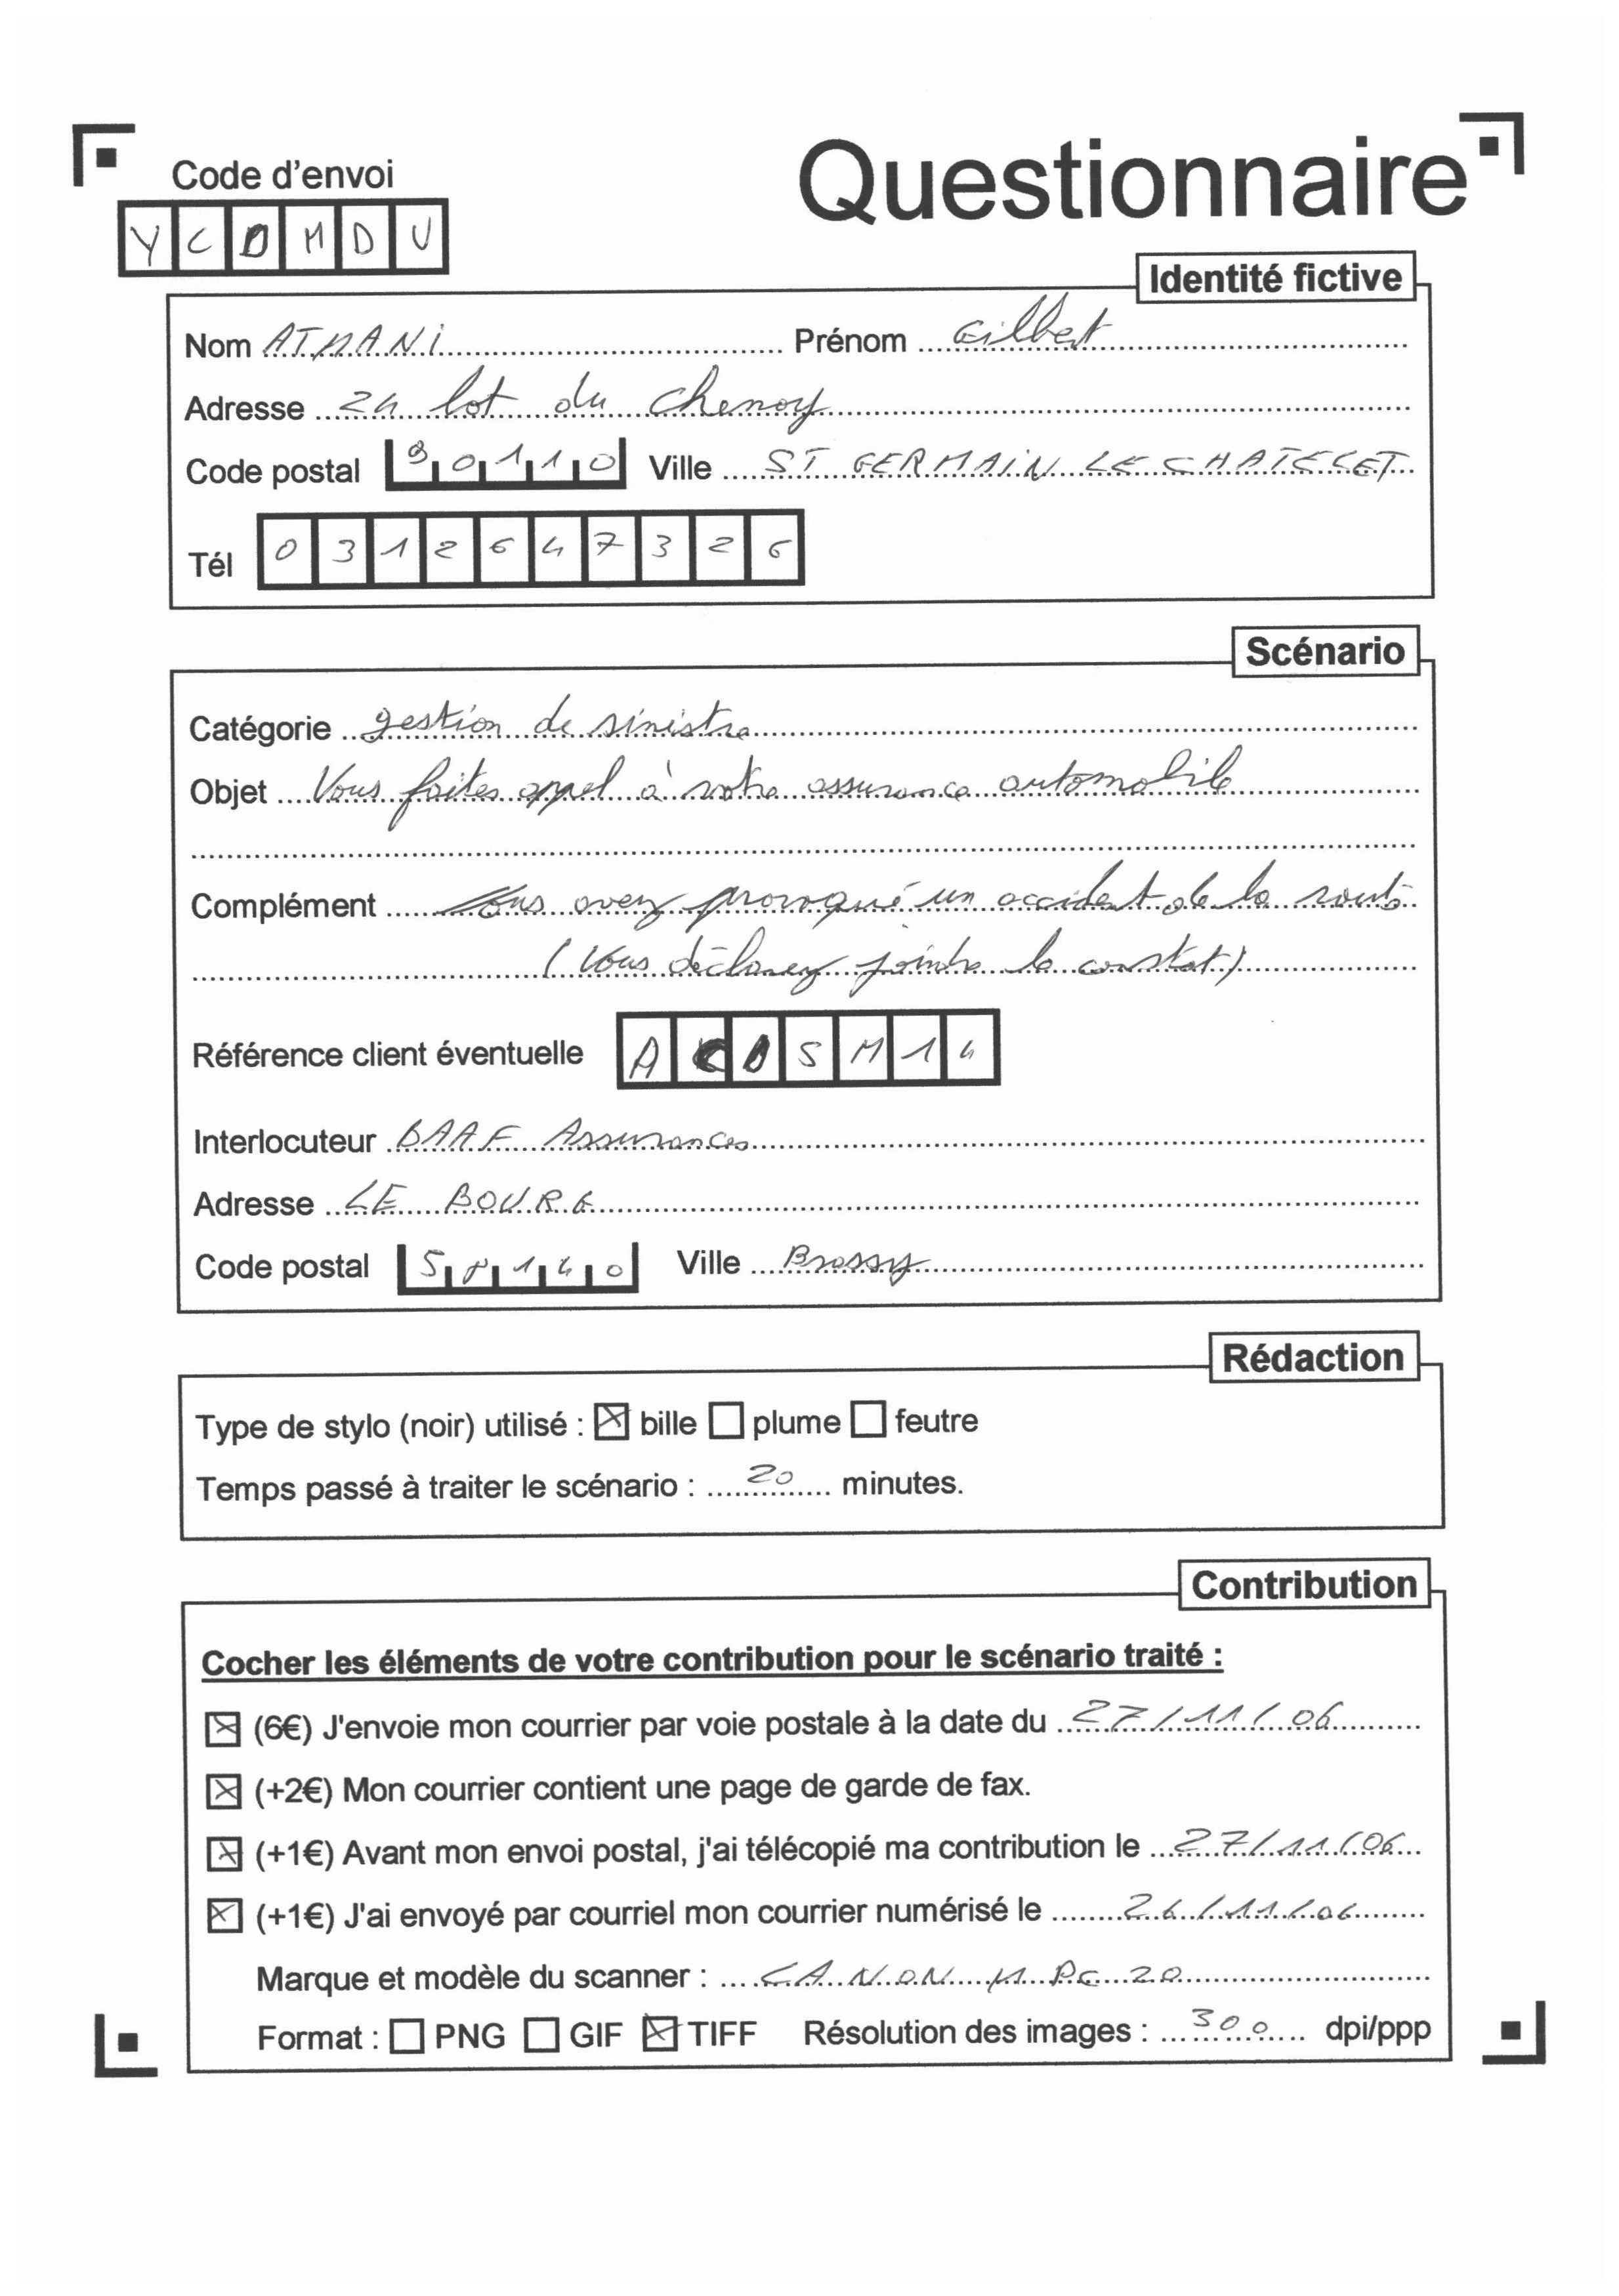 Code d'envoi
Questionnaire
Y C D M D U
Identité fictive
Nom ATMANI Prénom Gilbert
Adresse 24 lot du Chenoy
Code postal 90110 Ville ST GERMAIN LE CHATELET
Tél 0312647326
Scénario
Catégorie gestion de sinistre
Objet Vous faites appel à votre assurance automobile
Complément Vous avez provoqué un accident de la route
(Vous déclarez joindre le constat)
Référence client éventuelle A C D S M 1 4
Interlocuteur BAAF Assurances
Adresse LE BOURG
Code postal 58140 Ville Brassy
Rédaction
Type de stylo (noir) utilisé : ☒ bille ☐ plume ☐ feutre
Temps passé à traiter le scénario : 20 minutes.
Contribution
Cocher les éléments de votre contribution pour le scénario traité :
☒ (6€) J'envoie mon courrier par voie postale à la date du 27/11/06
☒ (+2€) Mon courrier contient une page de garde de fax.
☒ (+1€) Avant mon envoi postal, j'ai télécopié ma contribution le 27/11/06
☒ (+1€) J'ai envoyé par courriel mon courrier numérisé le 26/11/06
Marque et modèle du scanner : CANON MPC 20
Format : ☐ PNG ☐ GIF ☒ TIFF Résolution des images : 300 dpi/ppp